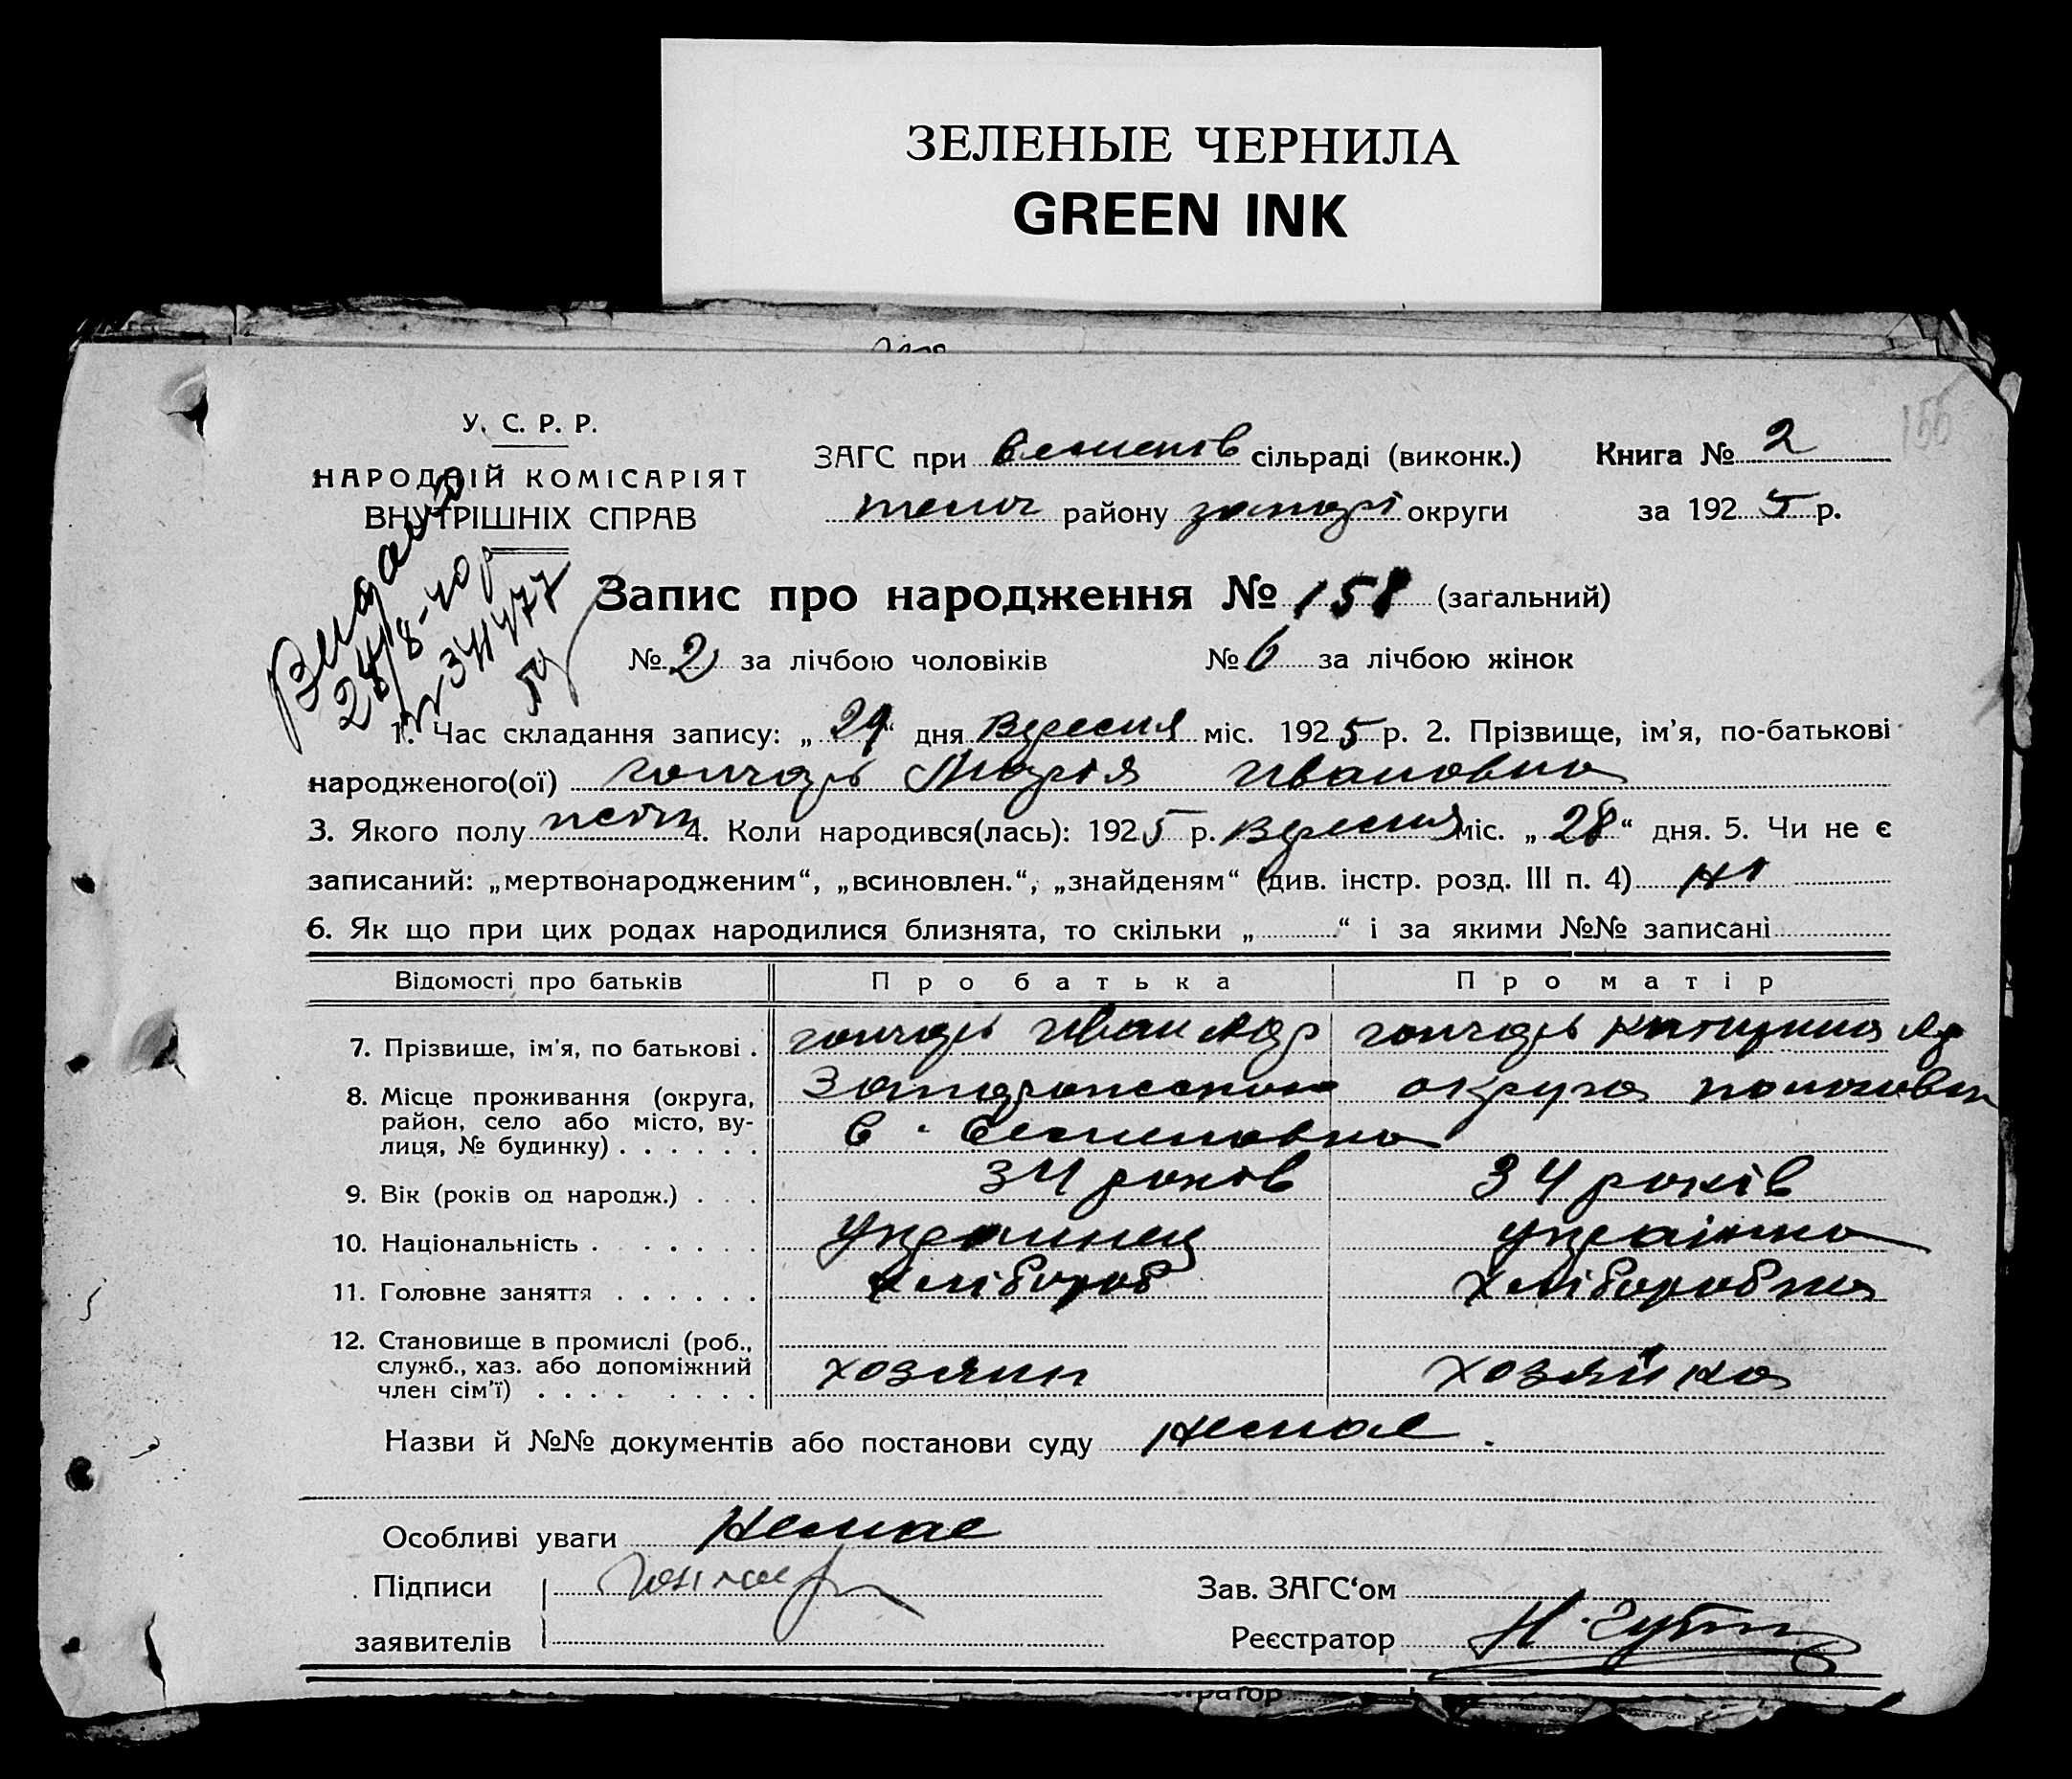 ЗЕЛЕНЫЕ ЧЕРНИЛА
GREEN INK
155
У. С. Р. Р.
НАРОДНІЙ КОМІСАРІЯТ
ВНУТРІШНІХ СПРАВ
ЗАГС при сільраді (виконк.) Книга № 2
району округи за 1925 р.
Запис про народження № 158 (загальний)
№ 2 за лічбою чоловіків № 6 за лічбою жінок
1. Час складання запису: „29“ дня Вересня міс. 1925 р. 2. Прізвище, ім’я, по-батькові
народженого(ої) гончарь Марія Ивановна
3. Якого полу 4. Коли народився(лась): 1925 р. Вересня міс. „28“ дня. 5. Чи не є
записаний: „мертвонародженим“, „всиновлен.“, „знайденям“ (див. інстр. розд. III п. 4) ні
6. Як що при цих родах народилися близнята, то скільки „ “ і за якими №№ записані
Відомості про батьків Про батька Про матір
7. Прізвище, ім’я, по батькові . гончарь Иван гончарь
8. Місце проживання (округа, округа
район, село або місто, ву-
лиця, № будинку) . . . . . . с.
9. Вік (років од народж.) . . . 34 років 34 років
10. Національність . . . . . . . украинец украінка
11. Головне заняття . . . . . . хлібороб хлiборобка
12. Становище в промислі (роб.,
служб., хаз. або допоміжний хозяин хозяйка
член сім’ї) . . . . . . . .
Назви й №№ документів або постанови суду немае.
Особливі уваги Немае
Підписи Гончарь Зав. ЗАГС‘ом
заявителів Реєстратор